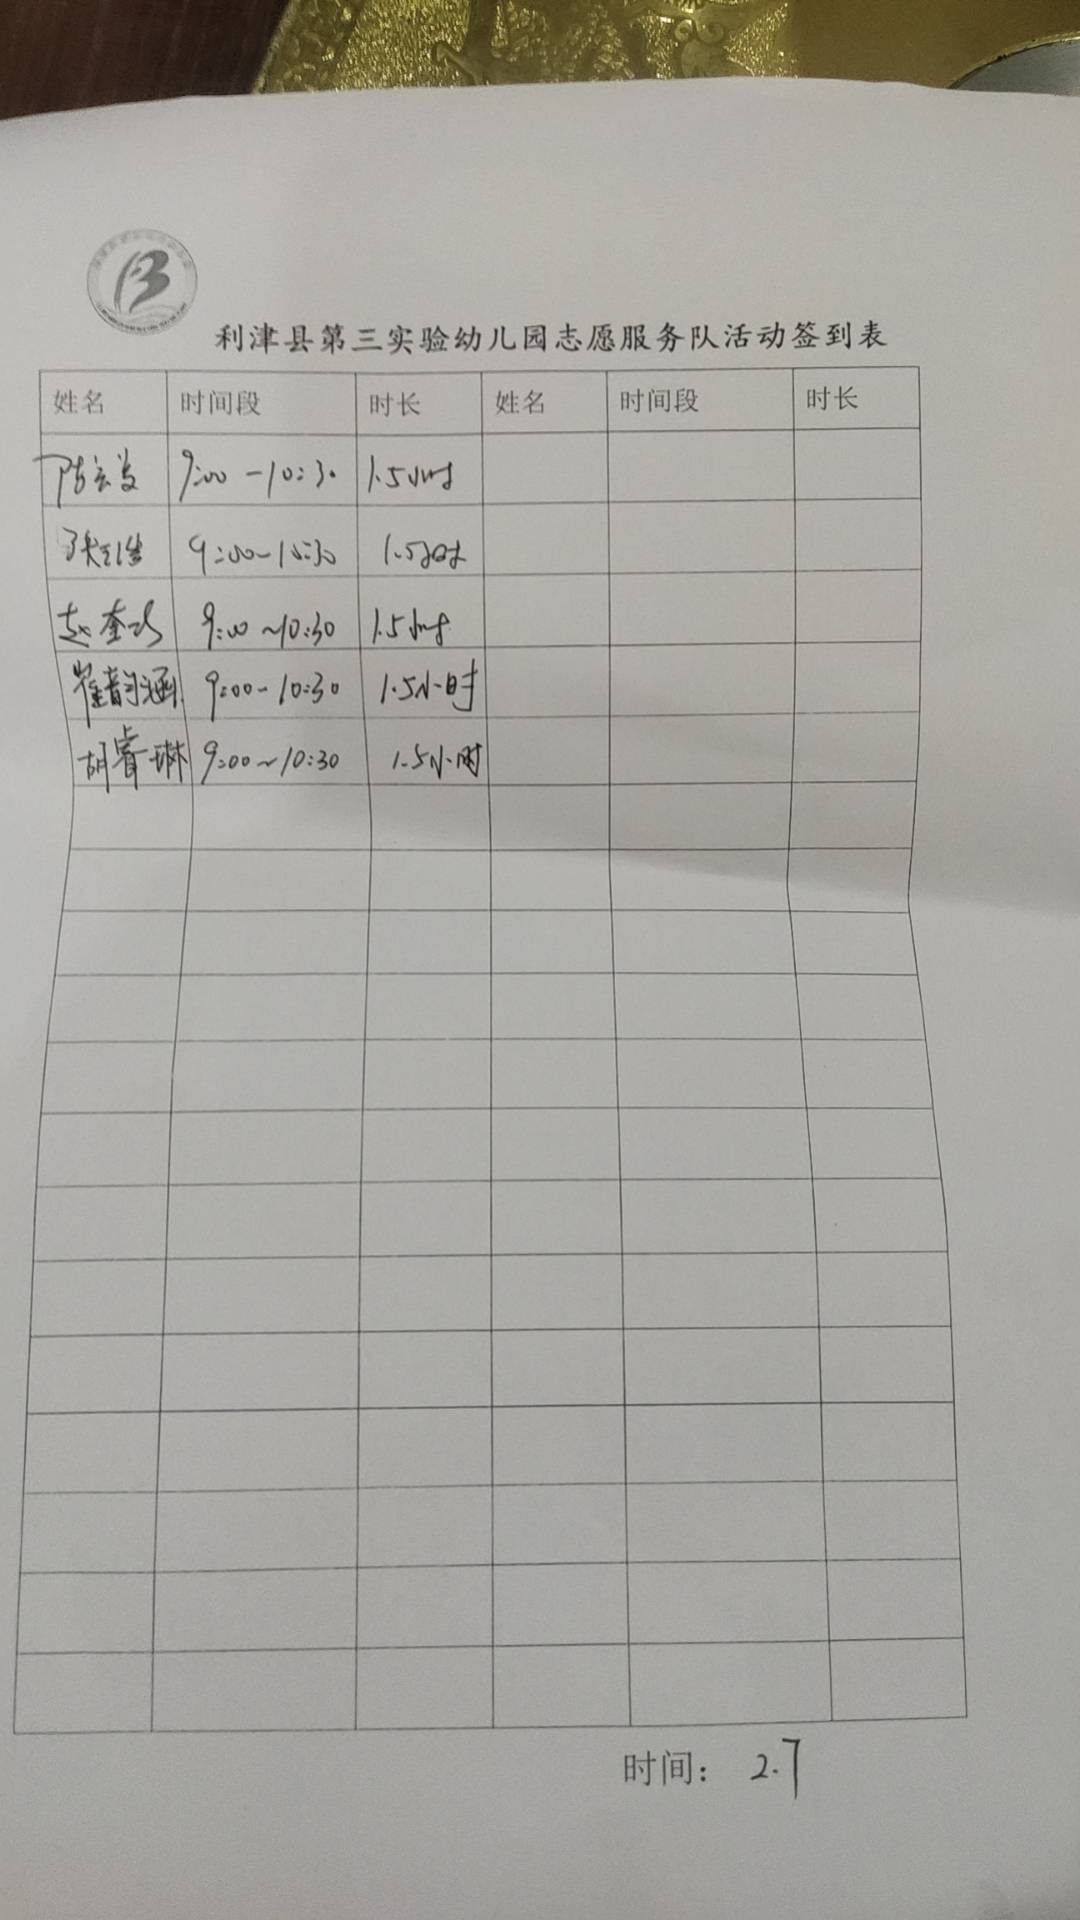 利津县第三实验幼儿园志愿服务队活动签到表
姓名 时间段 时长 姓名 时间段 时长
9:00-10:30 1.5小时
9:00-10:30 1.5小时
赵奎 9:00~10:30 1.5小时
崔韵涵 9:00-10:30 1.5小时
胡睿琳 9:00~10:30 1.5小时
时间: 2.7